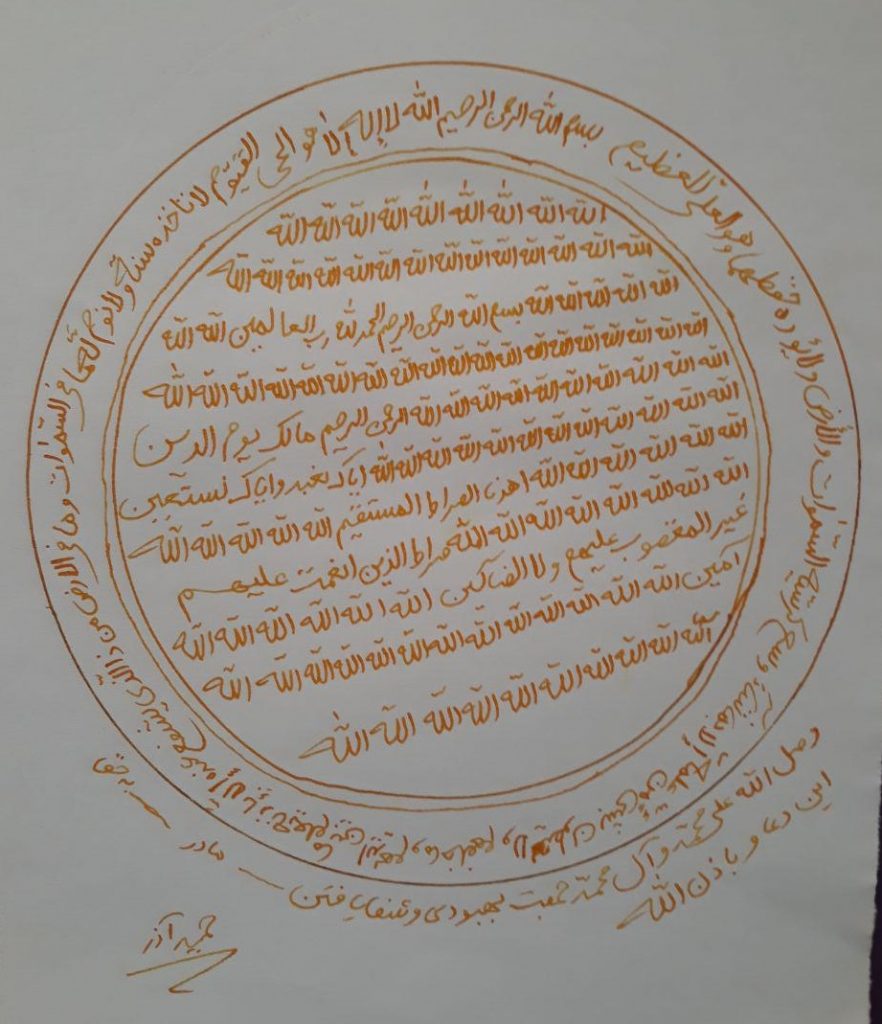 بسم الله الرحمن الرحيم الله لا إله إلا هو الحي القيوم لا تأخذه سنة ولا نوم له ما في السموات وما في الأرض من ذا الذي يشفع عنده إلا بإذنه يعلم ما بين أيديهم وما خلفهم ولا يحيطون بشيء من علمه إلا بما شاء وسع كرسيه السموات والأرض ولا يؤده حفظهما وهو العلي العظيم
الله الله الله الله الله الله الله الله الله
الله الله الله الله الله الله الله الله الله الله الله الله الله الله
الله الله الله الله الله بسم الله الرحمن الرحيم الحمد لله رب العالمين الله الله
الله الله الله الله الله الله الله الله الله الله الله الله الله الله الله الله الله الله الله
الله الله الله الله الله الله الله الله الله الله الرحمن الرحيم مالك يوم الدين
الله الله الله الله الله الله الله الله الله الله الله الله اياك نعبد واياك نستعين
الله الله الله الله الله الله اهدنا الصراط المستقيم الله الله الله الله الله
الله الله الله الله الله الله الله الله صراط الذين انعمت عليهم
غير المغضوب عليهم ولا الضالين الله الله الله الله الله الله الله
آمين الله الله الله الله الله الله الله الله الله الله الله الله الله
الله الله الله الله الله الله الله الله الله الله
وصل الله على محمد وآل محمد جهت بهبودی و شفا یافتن — مادر — به حق
این دعا و باذن الله